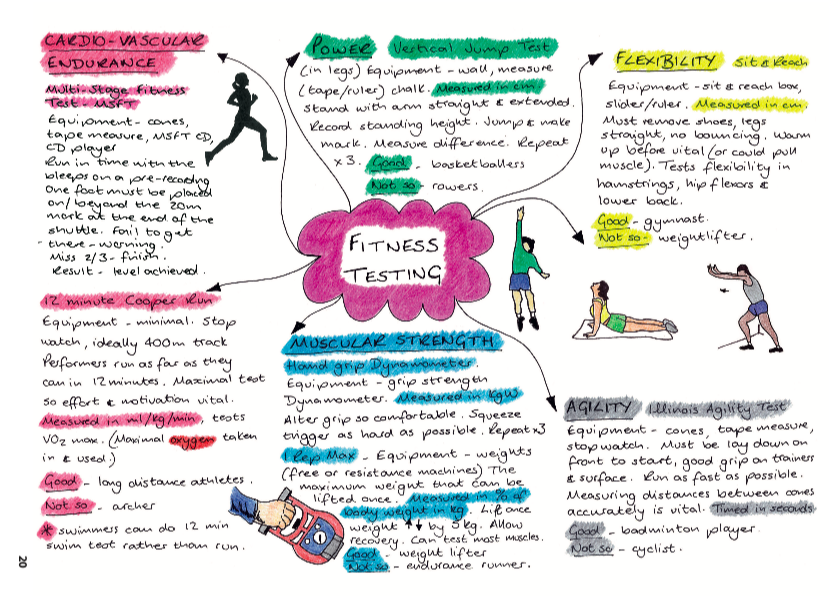 CARDIO-VASCULAR
ENDURANCE
Multi-Stage Fitness
Test - MSFT
Equipment - cones,
tape measure, MSFT CD,
CD player
Run in time with the
bleeps on a pre-recording
One foot must be placed
on/beyond the 20m
mark at the end of the
shuttle. Fail to get
there - warning.
Miss 2/3 - finish.
Result - level achieved.
12 minute Cooper Run
Equipment - minimal. Stop
watch, ideally 400m track
Performers run as far as they
can in 12 minutes. Maximal test
so effort & motivation vital.
Measured in ml/kg/min, tests
VO2 max. (Maximal oxygen taken
in & used.)
Good - long distance athletes.
Not so - archer
* swimmers can do 12 min
swim test rather than run.
POWER Vertical Jump Test
(in legs) Equipment - wall, measure
(tape/ruler) chalk. Measured in cm
Stand with arm straight & extended.
Record standing height. Jump & make
mark. Measure difference. Repeat
x 3. Good - basketballers
Not so - rowers.
FITNESS
TESTING
MUSCULAR STRENGTH
Hand grip Dynamometer.
Equipment - grip strength
Dynamometer. Measured in KgW
Alter grip so comfortable. Squeeze
trigger as hard as possible. Repeat x3
1 Rep Max - Equipment - weights
(free or resistance machines) The
maximum weight that can be
lifted once. Measured in % of
body weight in kg. Lift once
weight ↑↓ by 5kg. Allow
recovery. Can test most muscles.
Good - weight lifter
Not so - endurance runner.
FLEXIBILITY Sit & Reach
Equipment - sit & reach box,
slider/ruler. Measured in cm.
Must remove shoes, legs
straight, no bouncing. Warm
up before vital (or could pull
muscle). Tests flexibility in
hamstrings, hip flexors &
lower back.
Good - gymnast.
Not so - weightlifter.
AGILITY Illinois Agility Test
Equipment - cones, tape measure,
stopwatch. Must be lay down on
front to start, good grip on trainers
& surface. Run as fast as possible.
Measuring distances between cones
accurately is vital. Timed in seconds
Good - badminton player.
Not so - cyclist.
20